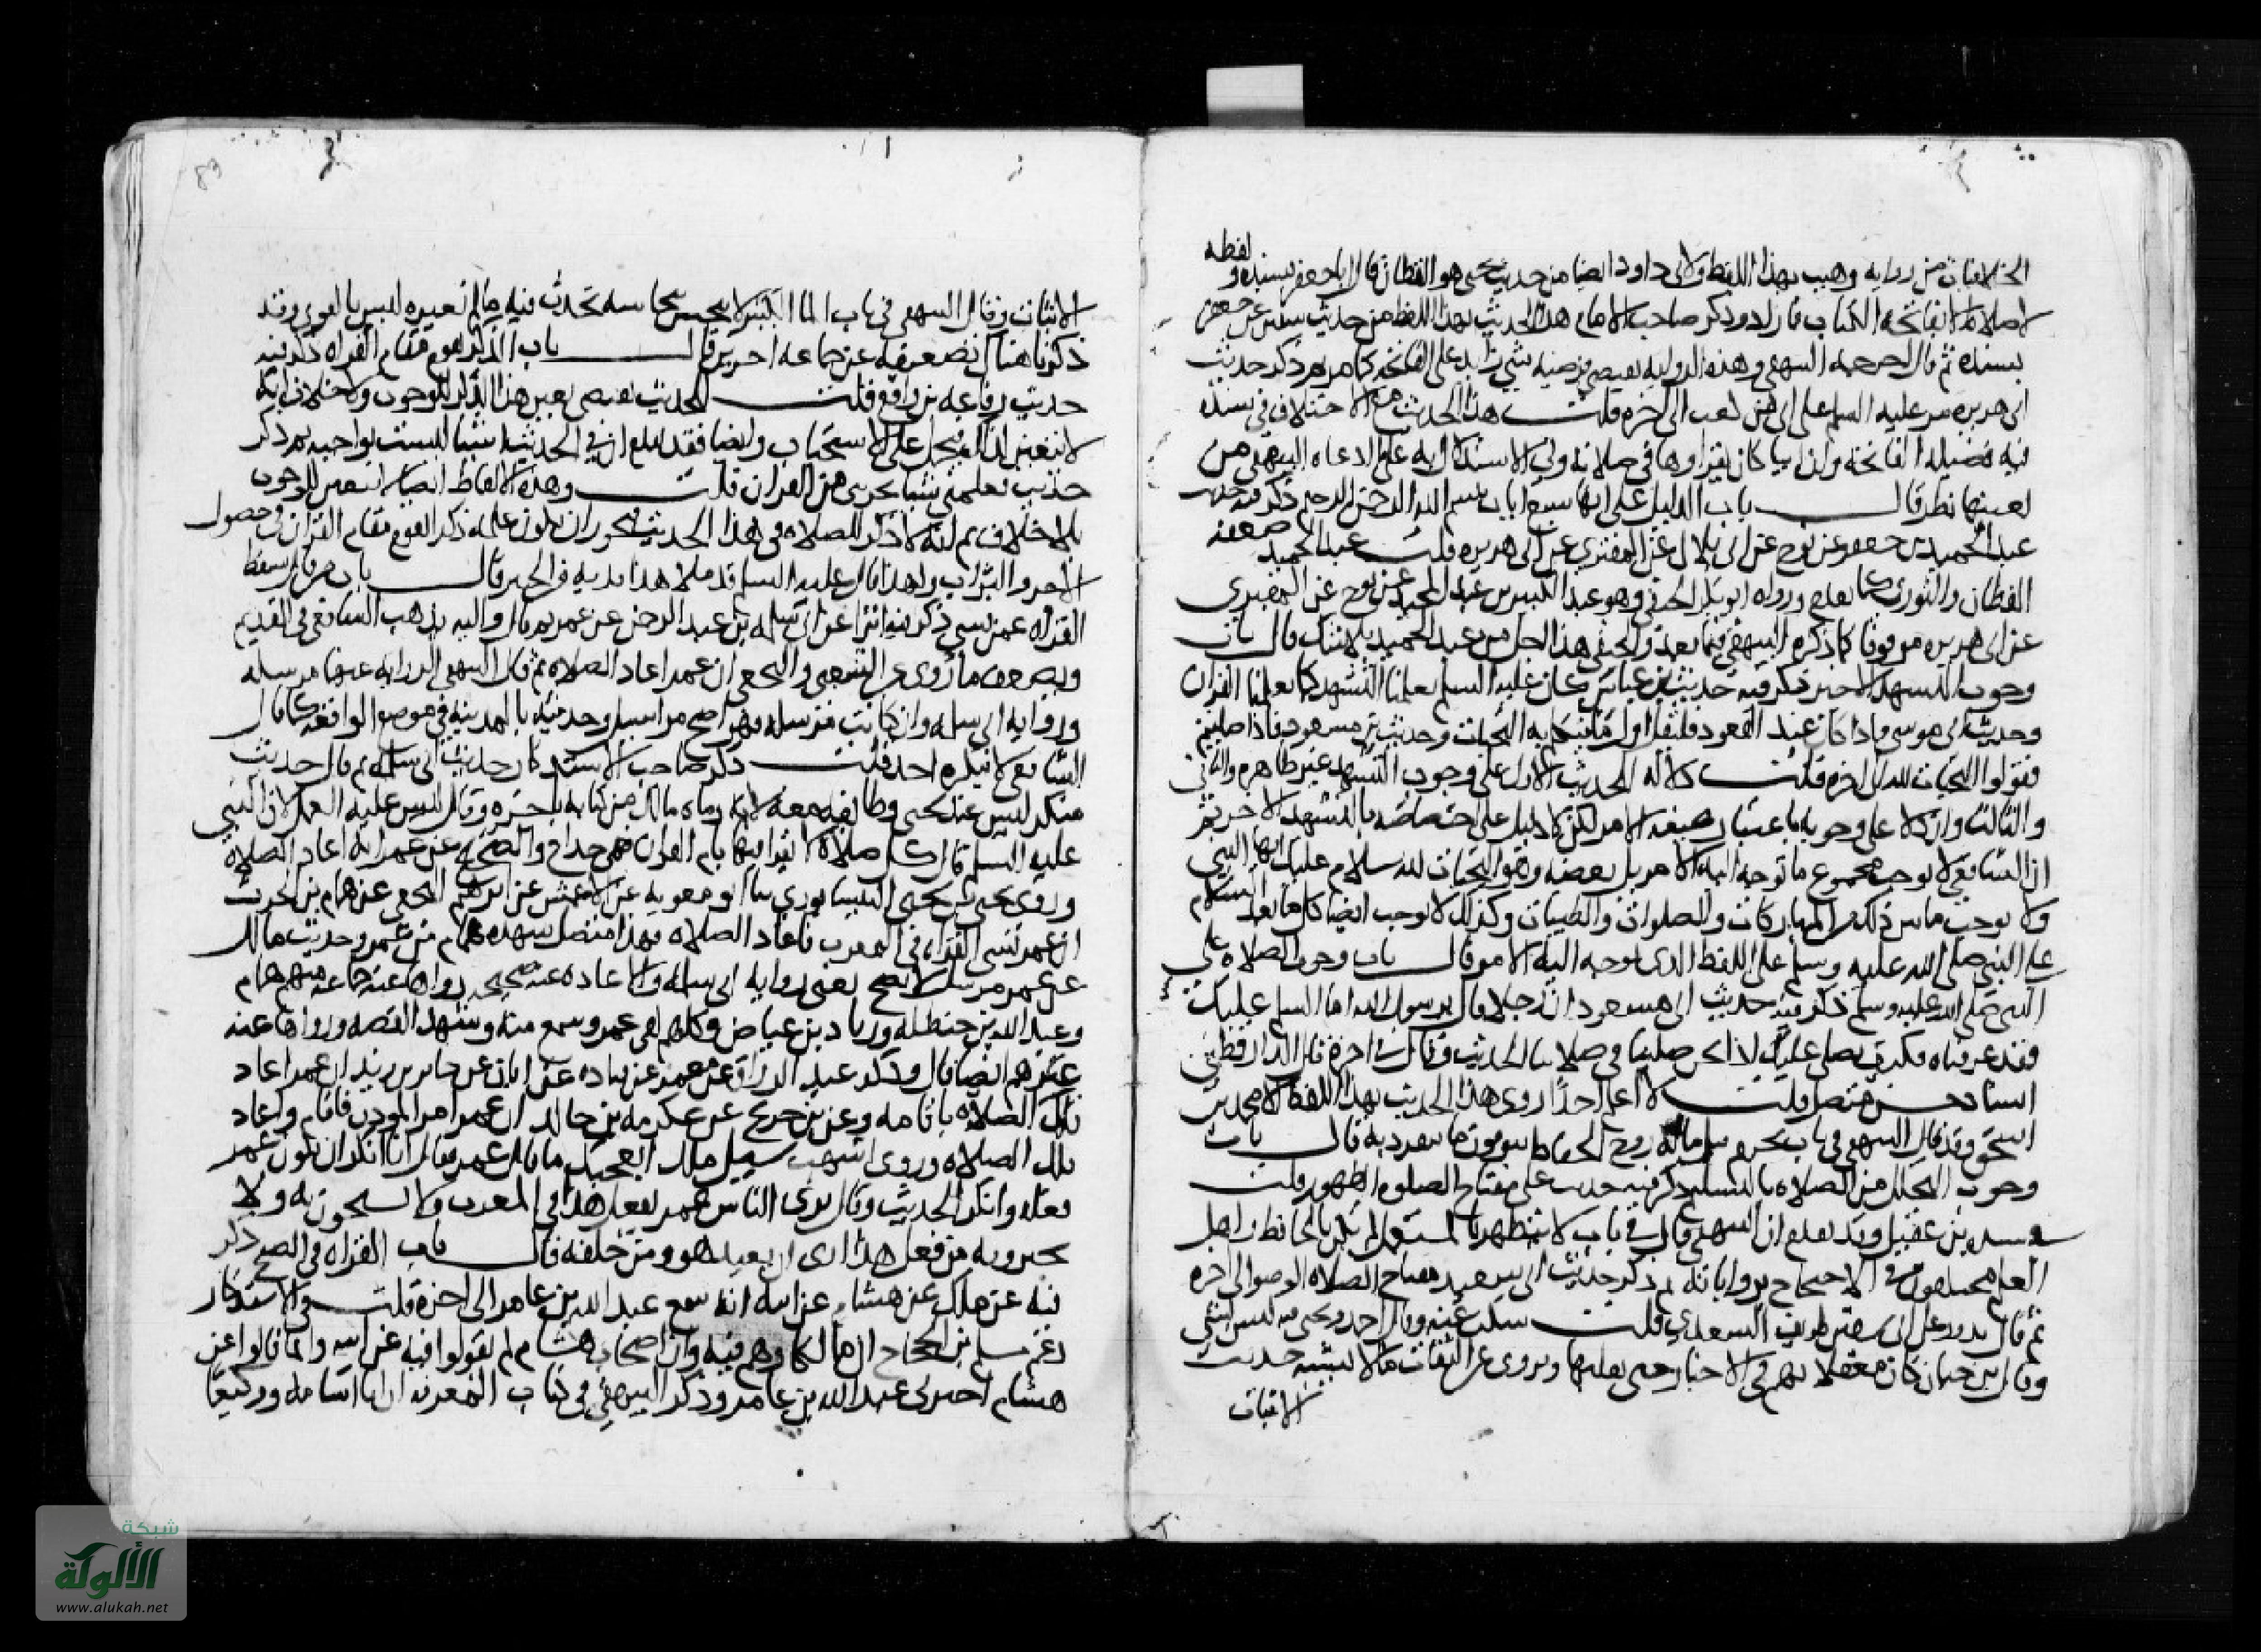 الخلافيات من رواية وهيب بهذا اللفظ ولابى داود ايضا من حديث يحيى هو القطان قال انا جعفر بسنده ولفظه
لا صلاة الا بفاتحة الكتاب فما زاد وذكر صاحب الامام هذا الحديث بهذا اللفظ من حديث سفين عن جعفر
بسنده ثم قال اخرجه البيهقى وهذه الرواية تقتضى فرضية شئ زائد على الفاتحة كما مر ثم ذكر حديث
ابى هريرة مر عليه السلم على ابى بن كعب الى اخره قلت هذا الحديث مع الاختلاف فى سنده
فيه فضيلة الفاتحة وان ابيا كان يقراوها فى صلاته وفى الاستدلال به على ما ادعاه البيهقى من
تعينها نظر قال باب الدليل على انها سبع ايات ببسم الله الرحمن الرحيم ذكر فيه حديث
عبد الحميد بن جعفر عن نوح عن ابى بلال عن المقبرى عن ابى هريرة قلت عبد الحميد ضعفه
القطان والثورى كما تقدم ورواه ابو بكر الحنفى وهو عبد الكبير بن عبد المجيد عن نوح عن المقبرى
عن ابى هريرة موقوفا كما ذكره البيهقى فيما بعد والحنفى هذا اجل من عبد الحميد بلا شك قال باب
وجوب التشهد الاخير ذكر فيه حديث بن عباس كان عليه السلم يعلمنا التشهد كما يعلمنا القران
وحديث ابى موسى واذا كان عند القعود فليقل اول ما يتكلم به التحيات وحديث بن مسعود فاذا صليتم
فقولوا التحيات لله الى اخره قلت دلالة الحديث الاول على وجوب التشهد غير ظاهره والثانى
والثالث وان دلا على وجوبه باعتبار صيغة الامر لكن لا دليل على اختصاصه بالتشهد الاخير ثم
ان الشافعى لا يوجب مجموع ما توجه اليه الامر بل بعضه وهو التحيات لله سلام عليك ايها النبى
ولا يوجب ما بين ذلك من المباركات والصلوات والطيبات وكذلك لا يوجب ايضا كل ما بعد السلام
على النبى صلى الله عليه وسلم على اللفظ الذى توجه اليه الامر قال باب وجوب الصلاة على
النبى صلى الله عليه وسلم ذكر فيه حديث ابى مسعود ان رجلا قال يرسول الله اما السلم عليك
فقد عرفناه فكيف نصلى عليك اذا نحن صلينا فى صلاتنا الحديث وقال فى اخره قال الدارقطنى
اسناد حسن متصل قلت لا اعلم احدا روى هذا الحديث بهذا اللفظ الا محمد بن
اسحق وقد قال البيهقى فى باب تحريم قتل ماله روح الحفاظ يتوقون ما ينفرد به قال باب
وجوب التحلل من الصلاة بالتسليم ذكر فيه حديث على مفتاح الصلوة الطهور قلت
فى سنده بن عقيل وقد تقدم ان البيهقى قال فى باب لا يتطهر بالمستعمل لم يكن بالحافظ واهل
العلم مختلفون فى الاحتجاج برواياته ثم ذكر حديث ابى سعيد مفتاح الصلاة الوضو الى اخره
ثم قال بدور على ابى سفين طريف السعدى قلت سكت عنه وقال احمد ويحيى فيه ليس بشئ
وقال بن حبان كان مغفلا يهم فى الاخبار حتى يقلبها ويروى عن الثقات ما لا يشبه حديث
الاثبات
الاثبات وقال البيهقى فى باب الما الكثير لا ينجس بنجاسة تحدث فيه ما لم تغيره ليس بالقوى وقد
ذكرنا هناك تضعيفه عن جماعة اخرين قال باب الذكر يقوم مقام القراة ذكر فيه
حديث رفاعة بن رافع قلت الحديث يقتضى تعين هذا الذكر للوجوب ولا خلاف انه
لا تتعين اذا لم يحمل على الاستحباب وايضا فقد تقدم ان فى الحديث اشيا ليست بواجبة ثم ذكر
حديث تعلمنى شيا يجزينى من القران قلت وهذه الالفاظ ايضا لا تتعين للوجوب
بلا خلاف ثم انه لا ذكر للصلاة فى هذا الحديث فيجوز ان يكون علمه ذكرا يقوم مقام القران فى حصول
الاجر والثواب ولهذا قال عليه السلم قد ملا هذا يديه من الخير قال باب من قال تسقط
القراة عمن نسى ذكر فيه اثرا عن ابى سلمة بن عبد الرحمن عن عمر ثم قال واليه يذهب الشافعى فى القديم
ويضعف ما روى عن الشعبى والنخعى ان عمر اعاد الصلاة ثم قال البيهقى الرواية عنهما مرسلة
ورواية ابى سلمة وان كانت مرسلة فهو اصح مراسيل وحديثه بالمدينة فى موضع الواقعة كما قال
الشافعى لا ينكره احد قلت ذكر صاحب الاستذكار حديث ابى سلمة ثم قال حديث
منكر ليس عند يحيى وطائفة معه لانه رماه مالك من كتابه باخره وقال ليس عليه العمل لان النبى
عليه السلم قال كل صلاة لا يقرا فيها بام القران فهى خداج والصحيح عن عمر انه اعاد الصلاة
وروى يحيى بن يحيى النيسابورى ثنا ابو معوية عن الاعمش عن ابراهيم النخعى عن همام بن الحرث
ان عمر نسى القراة فى المغرب فاعاد الصلاة فهذا متصل شهده همام من عمر وحديث مالك
عن عمر مرسل لا يصح يعنى رواية ابى سلمة والاعادة عنه صحيحة رواها عنه جماعة منهم همام
وعبد الله بن حنظلة وزياد بن عياض وكلهم لقى عمر وسمع منه وشهد القصة ورواها عنه
غيرهم ايضا قال وذكر عبد الرزاق عن معمر عن قتادة عن ابان عن جابر بن يزيد ان عمر اعاد
تلك الصلاة باقامة وعن بن جريج عن عكرمة بن خالد ان عمر امر المؤذن فاقام واعاد
تلك الصلاة وروى اشهب سئل ملك ايعجبك ما قال عمر فقال انا انكر ان يكون عمر
فعله وانكر الحديث وقال يرى الناس عمر يفعل هذا فى المغرب ولا يسبحون به ولا
يخبرونه من فعل هذا ارى ان يعيد هو ومن خلفه قال باب القراة فى الصبح ذكر
فيه عن ملك عن هشام عن ابيه انه سمع عبد الله بن عامر الى اخره قلت فى الاستذكار
زعم مسلم بن الحجاج ان مالكا وهم فيه وان اصحاب هشام لم يقولوا فيه عن ابيه وانما قالوا عن
هشام اخبرنى عبد الله بن عامر وذكر البيهقى فى كتاب المعرفة ان ابا اسامة ووكيعا
شبكة
الألوكة
www.alukah.net